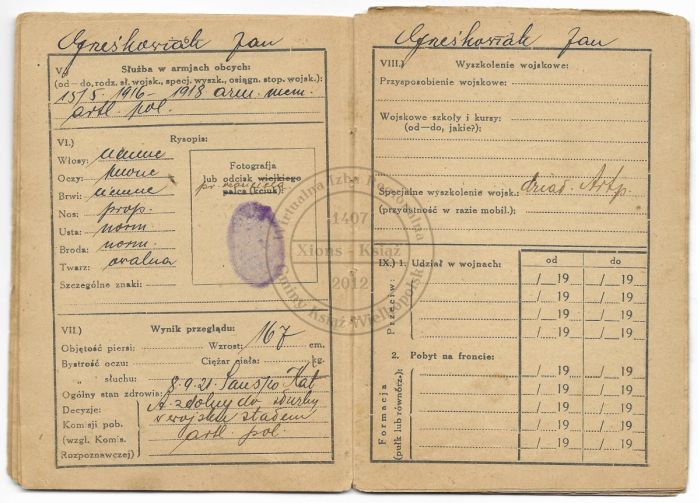 Grześkowiak Jan
V.) Służba w armjach obcych:
(od—do, rodz. sł. wojsk., specj. wyszk., osiągn. stop. wojsk.):
15/5. 1916 - 1918 arm. niem.
artl. pol.
VI.) Rysopis:
Włosy: ciemne
Oczy: piwne
Brwi: ciemne
Nos: prop.
Usta: norm.
Broda: norm.
Twarz: owalna
Szczególne znaki:
Fotografja
lub odcisk wiejkiego
palca (kciuk):
VII.) Wynik przeglądu:
Objętość piersi: Wzrost: 167 cm.
Bystrość oczu: Ciężar ciała: kg.
słuchu:
Ogólny stan zdrowia: 8.9.21. Kat
Decyzje: A. zdolny do służby
Komisji pob. w wojsku stałem
(wzgl. Komis. artl. pol.
Rozpoznawczej)
Grześkowiak Jan
VIII.) Wyszkolenie wojskowe:
Przysposobienie wojskowe:
Wojskowe szkoły i kursy:
(od—do, jakie?):
Specjalne wyszkolenie wojsk.: dział. Art. p.
(przydatność w razie mobil.)
IX.) 1. Udział w wojnach: od do
Przeciw:
/ 19 / 19
/ 19 / 19
/ 19 / 19
/ 19 / 19
2. Pobyt na froncie:
Formacja
(pułk lub równorz.):
/ 19 / 19
/ 19 / 19
/ 19 / 19
/ 19 / 19
/ 19 / 19
Wirtualna Izba Regionalna
1407
Xions - Książ
2012
Gminy Książ Wielkopolski